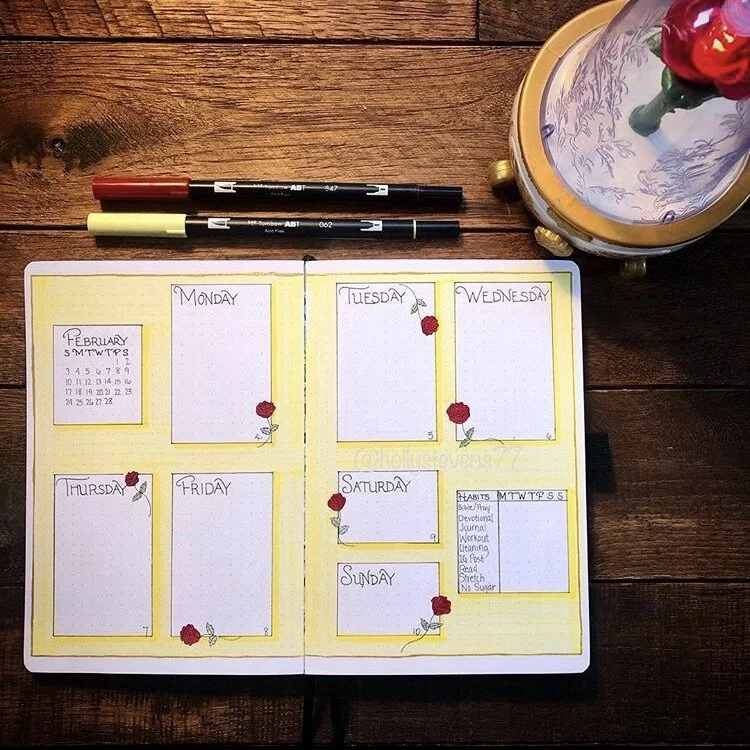 Mr Tombow ABT 847
Acid Free
Mr Tombow ABT 062
Acid Free
MONDAY
4
FEBRUARY
S M T W T F S
1 2
3 4 5 6 7 8 9
10 11 12 13 14 15 16
17 18 19 20 21 22 23
24 25 26 27 28
THURSDAY
7
FRIDAY
8
TUESDAY
5
WEDNESDAY
6
@hollystevens77
SATURDAY
9
SUNDAY
10
HABITS M T W T F S S
Bible/Pray
Devotional
Journal
Workout
Cleaning
IG Post
Read
Stretch
No Sugar